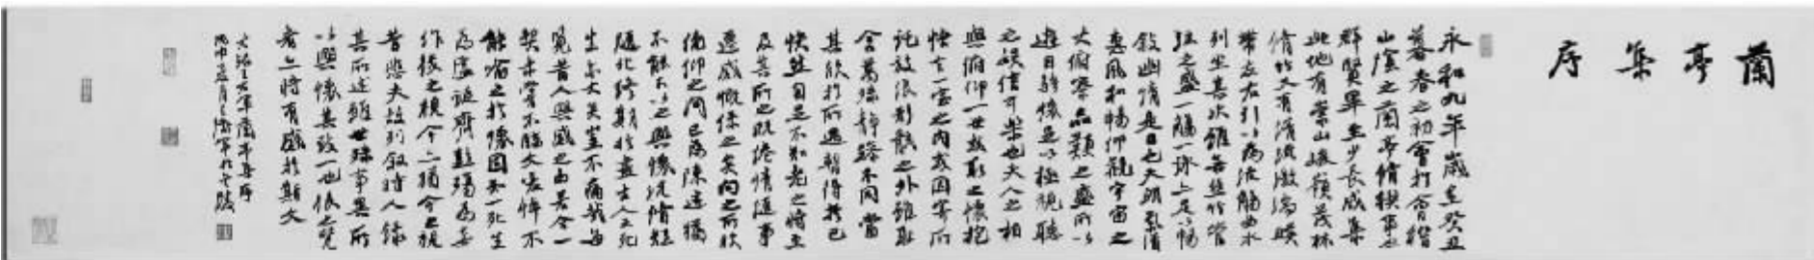 蘭亭集序
永和九年歲在癸丑
暮春之初會於會稽
山陰之蘭亭脩禊事也
群賢畢至少長咸集
此地有崇山峻領茂林
脩竹又有清流激湍暎
帶左右引以為流觴曲水
列坐其次雖無絲竹管
弦之盛一觴一詠亦足以暢
敘幽情是日也天朗氣清
惠風和暢仰觀宇宙之
大俯察品類之盛所以
遊目騁懷足以極視聽
之娛信可樂也夫人之相
與俯仰一世或取之懷抱
悟言一室之內或因寄所
託放浪形骸之外雖取
舍萬殊靜躁不同當
其欣於所遇暫得於己
快然自足不知老之將至
及其所之既倦情隨事
遷感慨係之矣向之所欣
俛仰之間已為陳迹猶
不能不以之興懷況脩短
隨化終期於盡古人云死
生亦大矣豈不痛哉每
覽昔人興感之由若合一
契未嘗不臨文嗟悼不
能喻之於懷固知一死生
為虛誕齊彭殤為妄
作後之視今亦猶今之視
昔悲夫故列敘時人錄
其所述雖世殊事異所
以興懷其致一也後之覽
者亦將有感於斯文